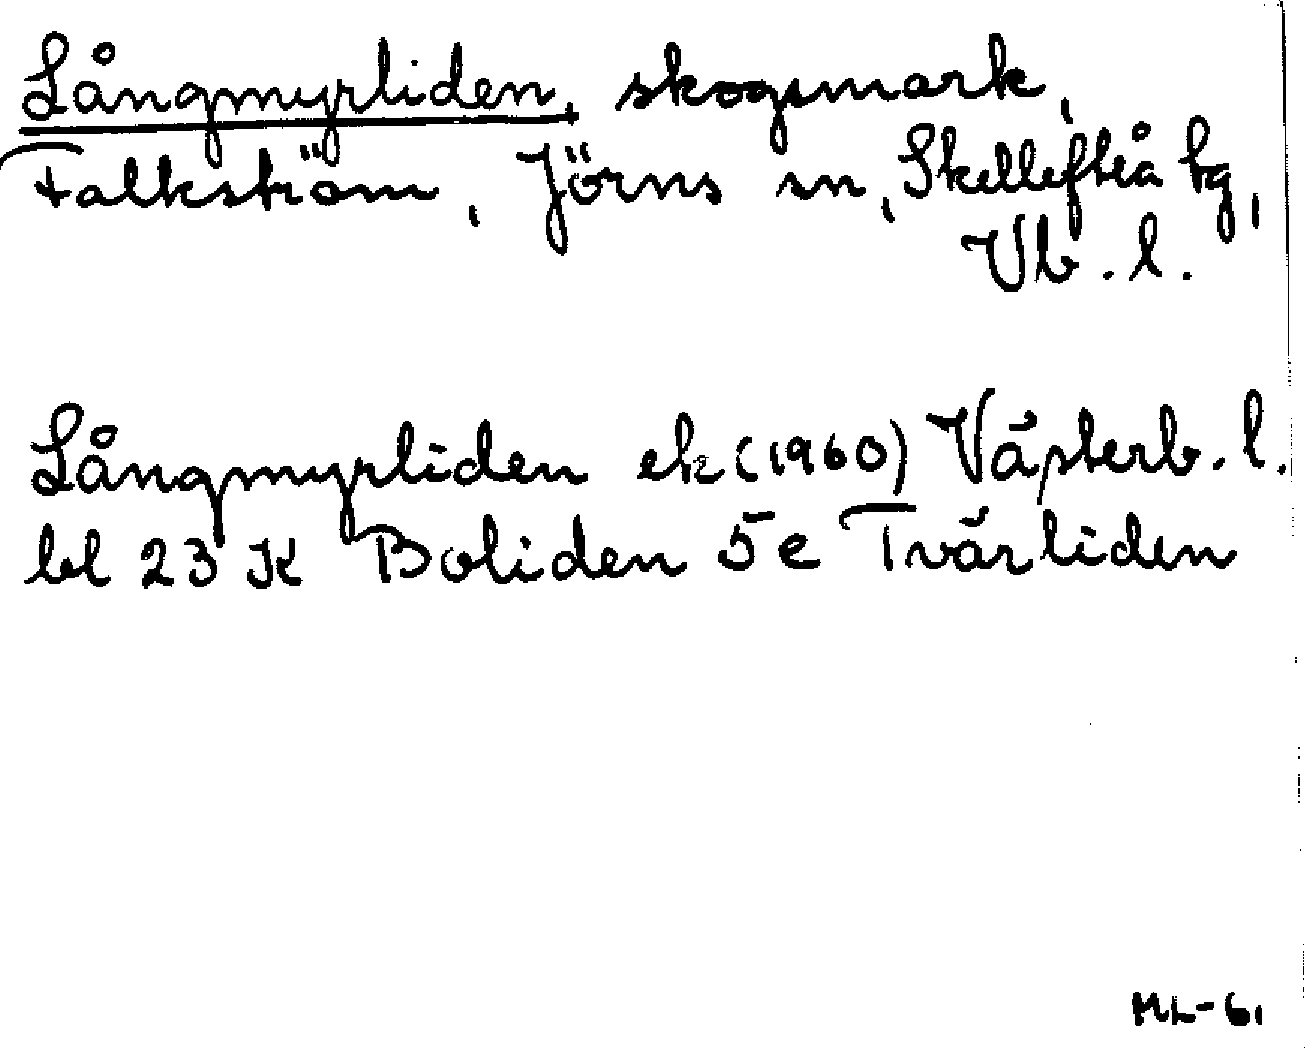 Långmyrliden, skogsmark,
Falkström, Jörns sn, Skellefteå tg,
Vb. l.
Långmyrliden ek (1960) Västerb. l.
bl 23 K Boliden 5e Tvärliden
ML-61